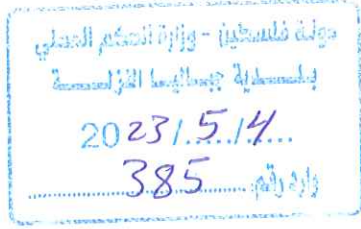 دولة فلسطين - وزارة الحكم المحلي
بلدية جباليا النزلة
2023/5/4
وارد رقم 385